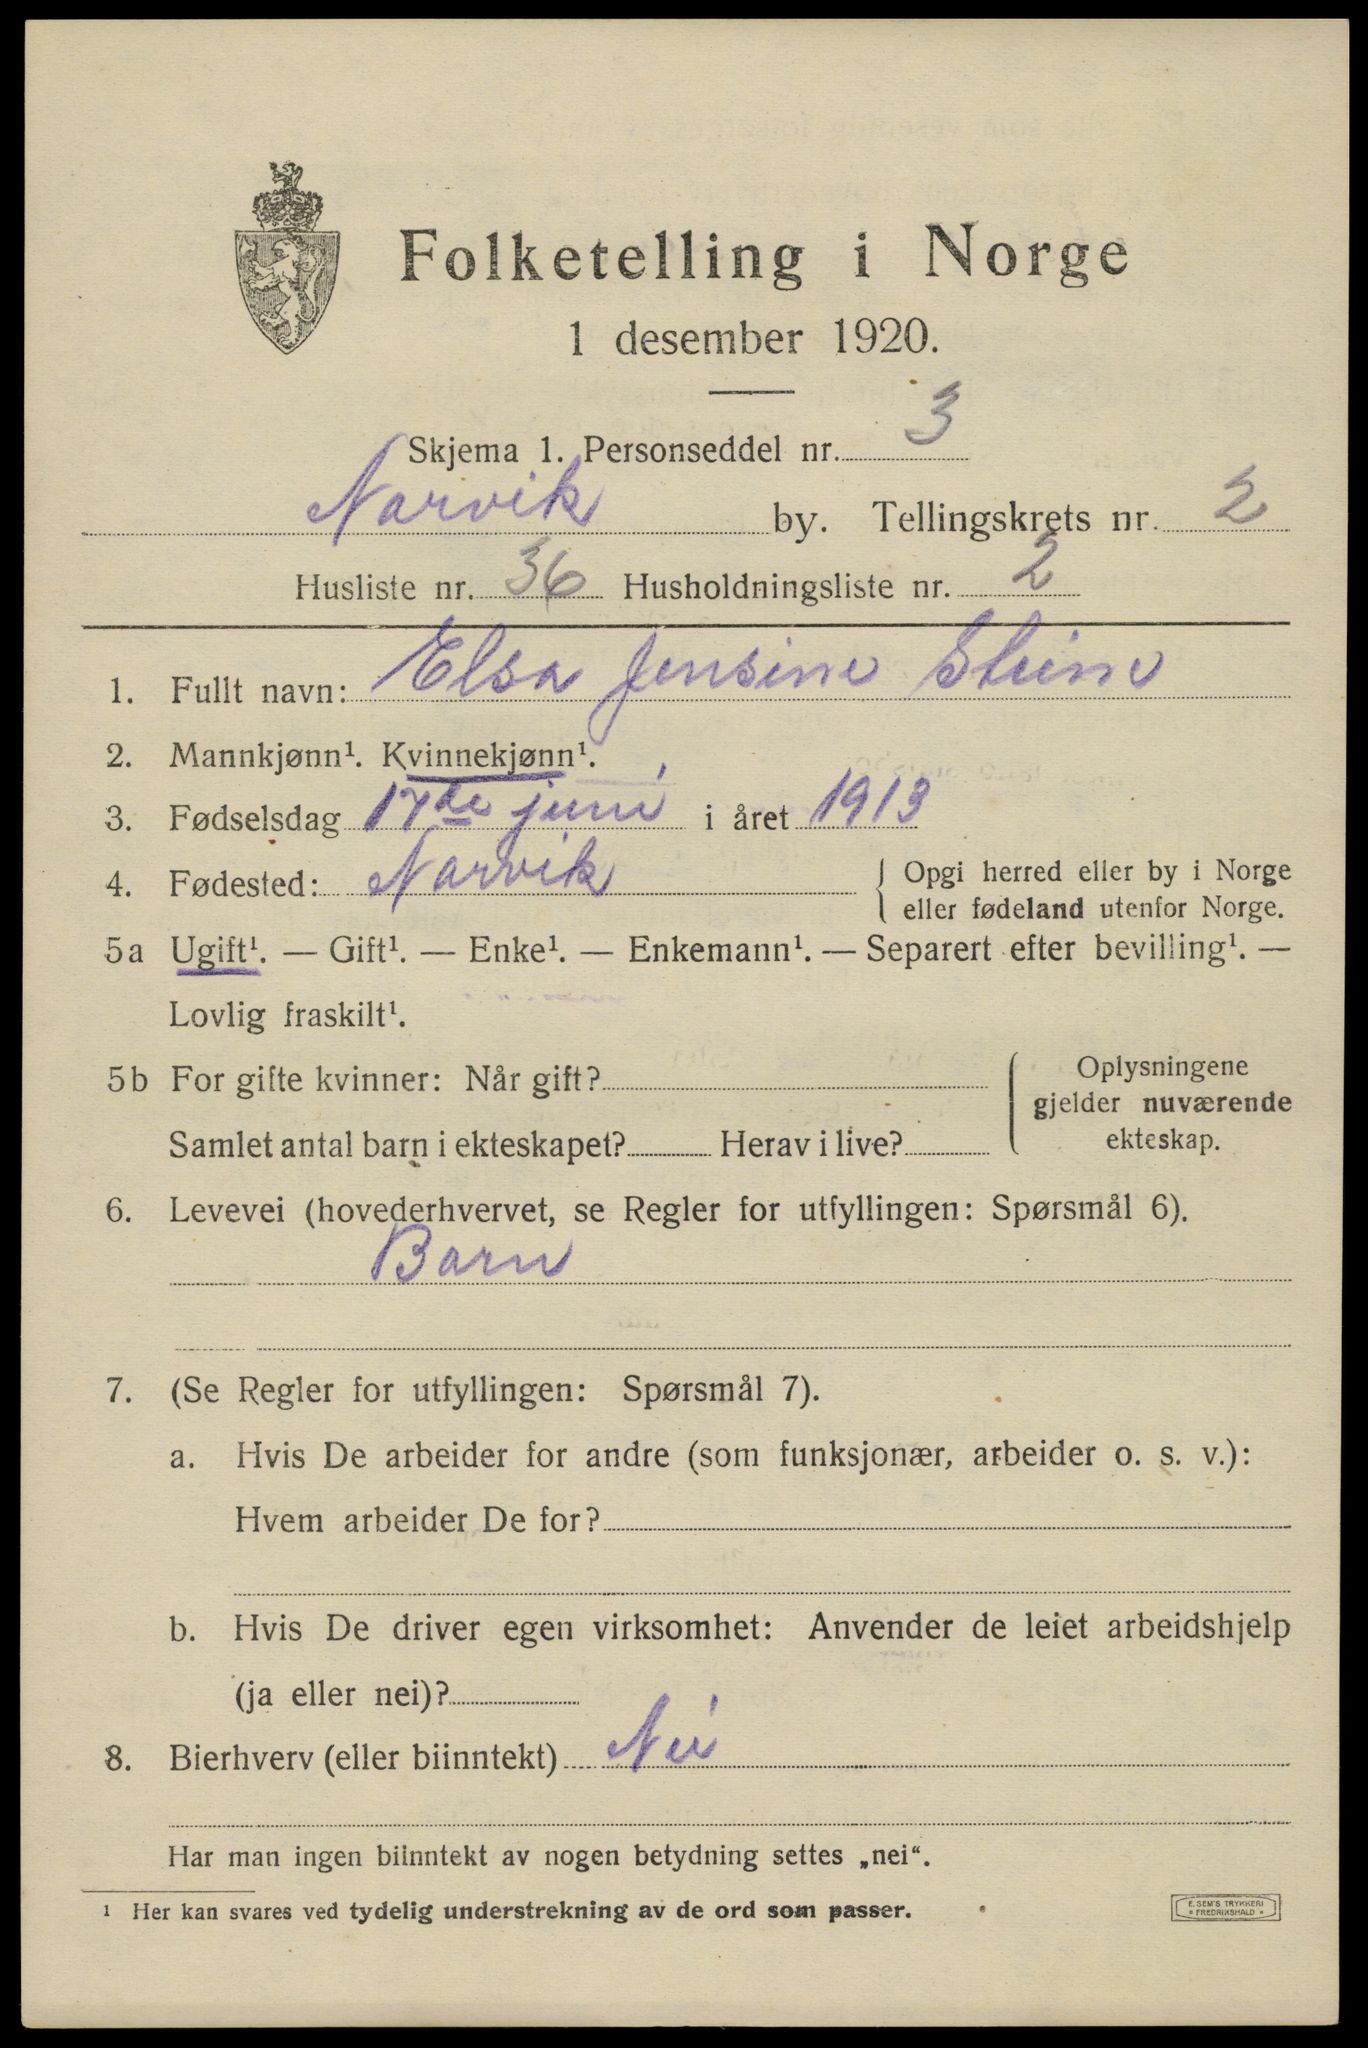 Folketelling i Norge
1 desember 1920.
Skjema 1. Personseddel nr. 3
Narvik by. Tellingskrets nr. 2
Husliste nr. 36 Husholdningsliste nr. 2
1. Fullt navn: Elsa Jensine Steine
2. Mannkjønn¹. Kvinnekjønn¹.
3. Fødselsdag 17de juni i året 1913
4. Fødested: Narvik { Opgi herred eller by i Norge
eller fødeland utenfor Norge.
5a Ugift¹. — Gift¹. — Enke¹. — Enkemann¹. — Separert efter bevilling¹. —
Lovlig fraskilt¹.
5b For gifte kvinner: Når gift? ( Oplysningene
gjelder nuværende
Samlet antal barn i ekteskapet? Herav i live? ekteskap.
6. Levevei (hovederhvervet, se Regler for utfyllingen: Spørsmål 6).
Barn
7. (Se Regler for utfyllingen: Spørsmål 7).
a. Hvis De arbeider for andre (som funksjonær, arbeider o. s. v.):
Hvem arbeider De for?
b. Hvis De driver egen virksomhet: Anvender de leiet arbeidshjelp
(ja eller nei)?
8. Bierhverv (eller biinntekt) Nei
Har man ingen biinntekt av nogen betydning settes „nei“.
¹ Her kan svares ved tydelig understrekning av de ord som passer.
E. SEM'S TRYKKERI
* FREDRIKSHALD *